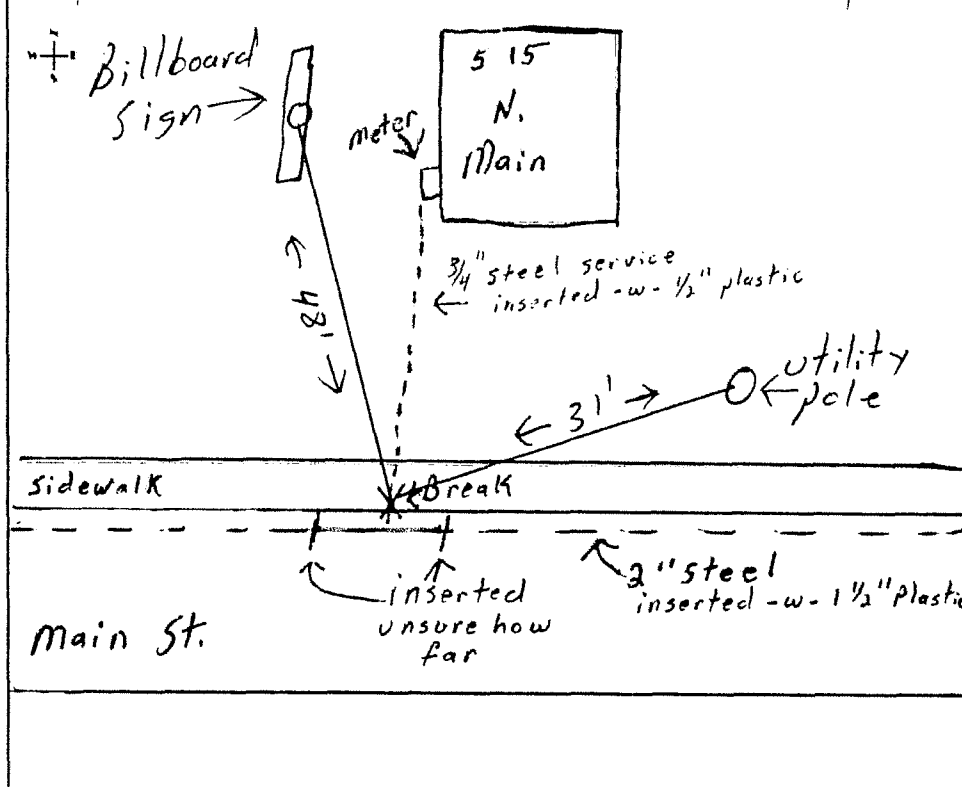 Billboard
Sign
5 15
N.
Main
meter
3/4" steel service
inserted -w- 1/2" plastic
48'
31'
utility
pole
sidewalk
Break
2" steel
inserted -w- 1 1/2" Plastic
inserted
unsure how
far
Main St.